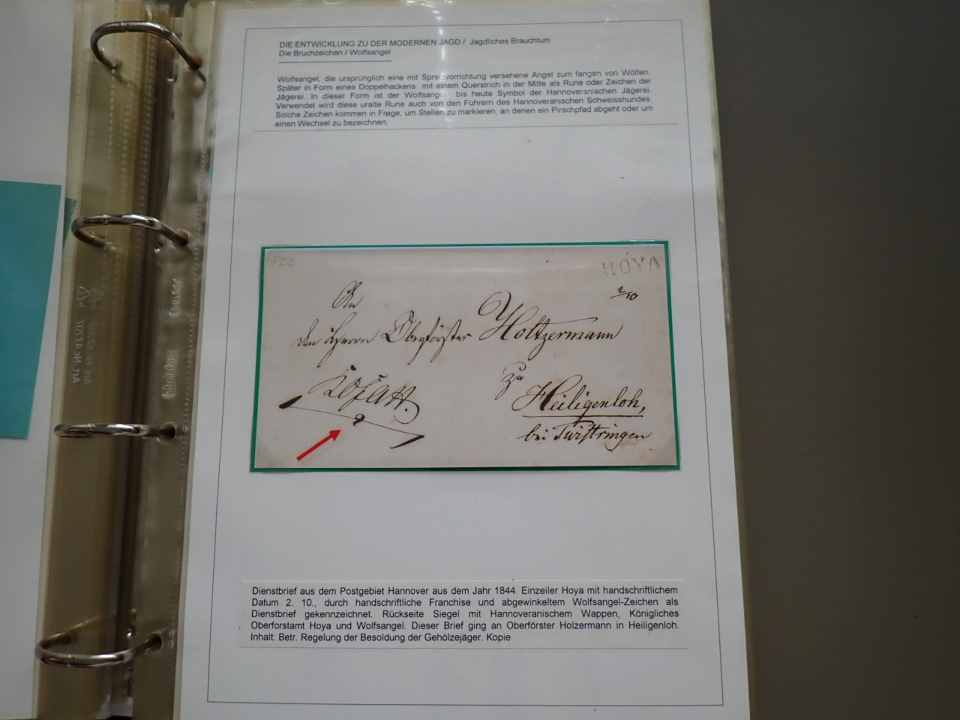 DIE ENTWICKLUNG ZU DER MODERNEN JAGD / Jagdliches Brauchtum
Die Bruchzeichen / Wolfsangel
Wolfsangel, die ursprünglich eine mit Spreizvorrichtung versehene Angel zum fangen von Wölfen.
Später in Form eines Doppelhackens mit einem Querstrich in der Mitte als Rune oder Zeichen der
Jägerei. In dieser Form ist der Wolfsangel bis heute Symbol der Hannoveranischen Jägerei.
Verwendet wird diese uralte Rune auch von den Führern des Hannoveranischen Schweisshundes.
Solche Zeichen kommen in Frage, um Stellen zu markieren, an denen ein Pirschpfad abgeht oder um
einen Wechsel zu bezeichnen.
HOYA
2/10
An
den Herrn Oberförster Holtzermann
zu
Heiligenloh,
bei Twistringen
Dienstbrief aus dem Postgebiet Hannover aus dem Jahr 1844. Einzeiler Hoya mit handschriftlichem
Datum 2. 10., durch handschriftliche Franchise und abgewinkeltem Wolfsangel-Zeichen als
Dienstbrief gekennzeichnet. Rückseite Siegel mit Hannoveranischem Wappen, Königliches
Oberforstamt Hoya und Wolfsangel. Dieser Brief ging an Oberförster Holzermann in Heiligenloh.
Inhalt: Betr. Regelung der Besoldung der Gehölzejäger. Kopie